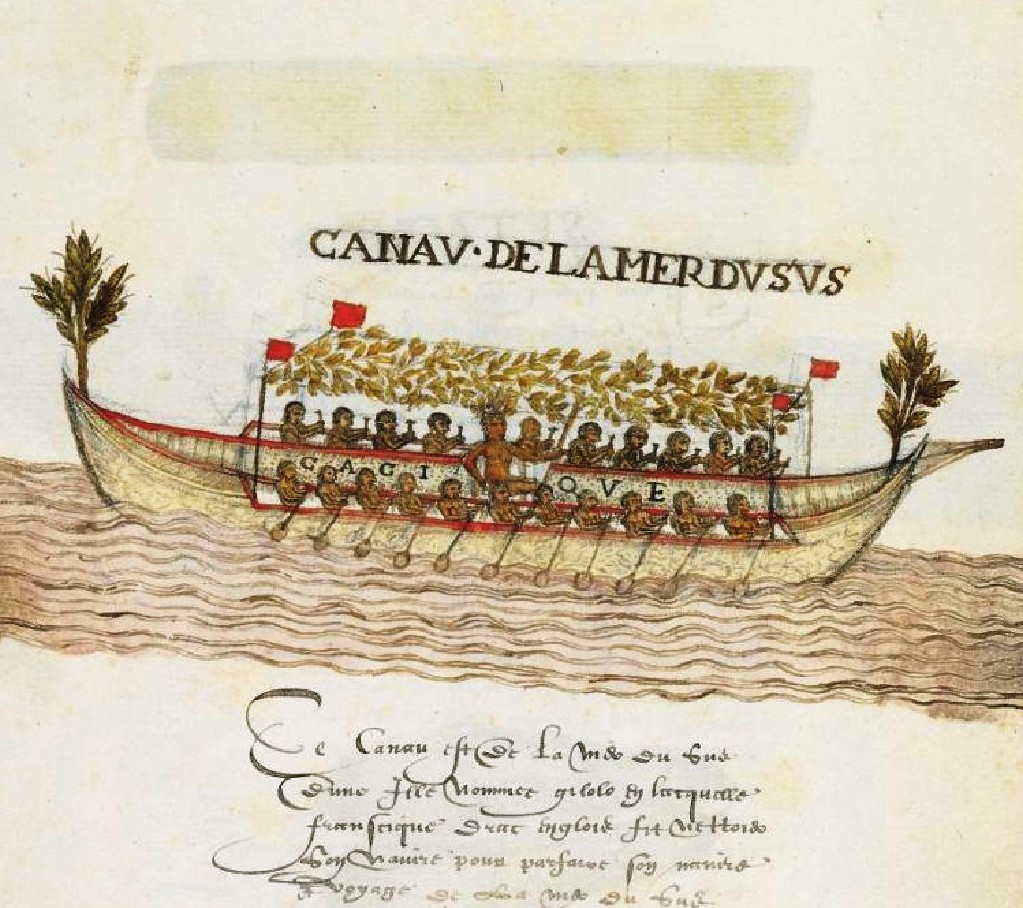 CANAV·DE LA MER DV SVS
CACI QVE
Ce Canau est de la mer du Sus
dune Isle nommee gilolo en lacquelle
franscique drac englois fit nettoier
Son navire pour parfaire son
voyage de la mer du Sus